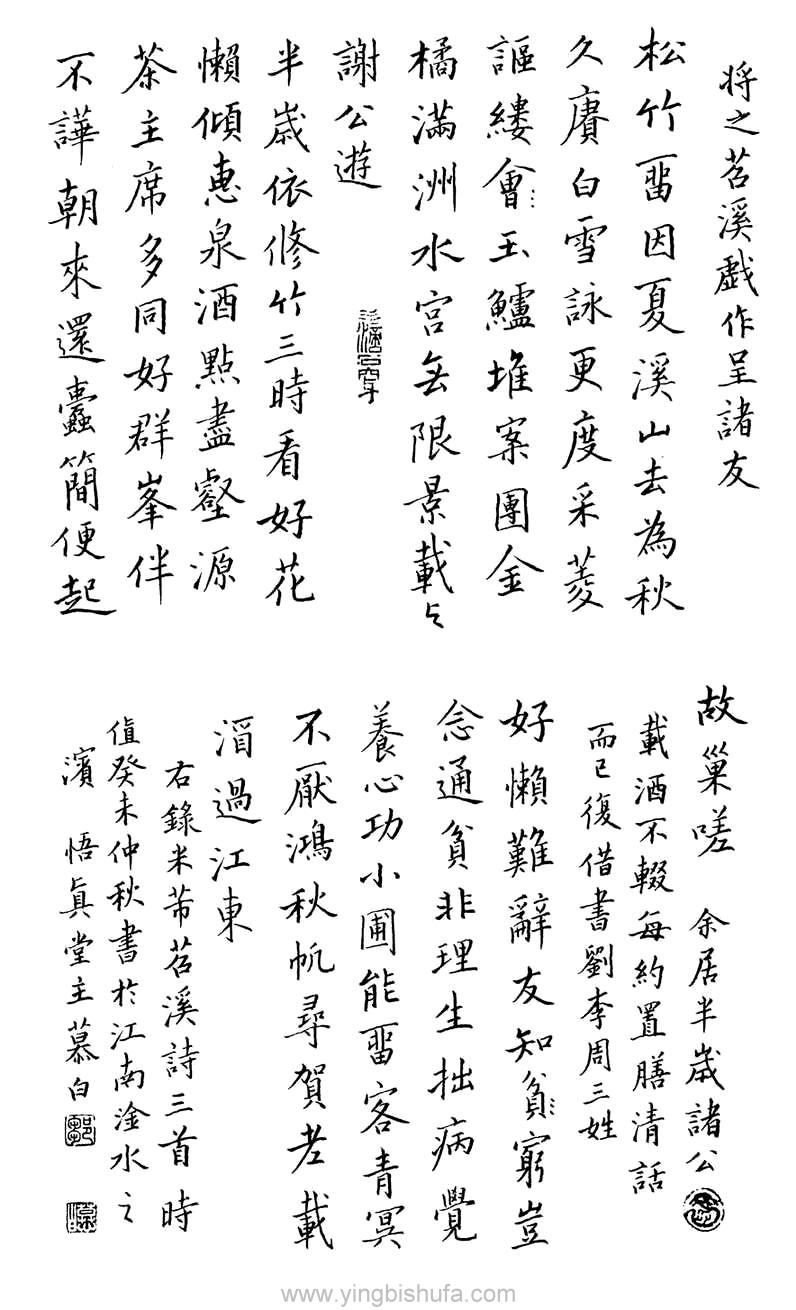 将之苕溪戲作呈諸友
松竹畱因夏溪山去為秋
久賡白雪詠更度采菱
謳縷會玉鱸堆案團金
橘滿洲水宮無限景載与
謝公遊
半歲依修竹三時看好花
懶傾惠泉酒點盡壑源
茶主席多同好群峯伴
不譁朝來還蠹簡便起
故巢嗟 余居半歲諸公
載酒不輟每約置膳清話
而已復借書劉李周三姓
好懶難辭友知貧窮豈
念通貧非理生拙病覺
養心功小圃能畱客青冥
不厭鴻秋帆尋賀老載
酒過江東
右錄米芾苕溪詩三首 時
值癸未仲秋書於江南淦水之
濱 悟真堂主慕白
www.yingbishufa.com